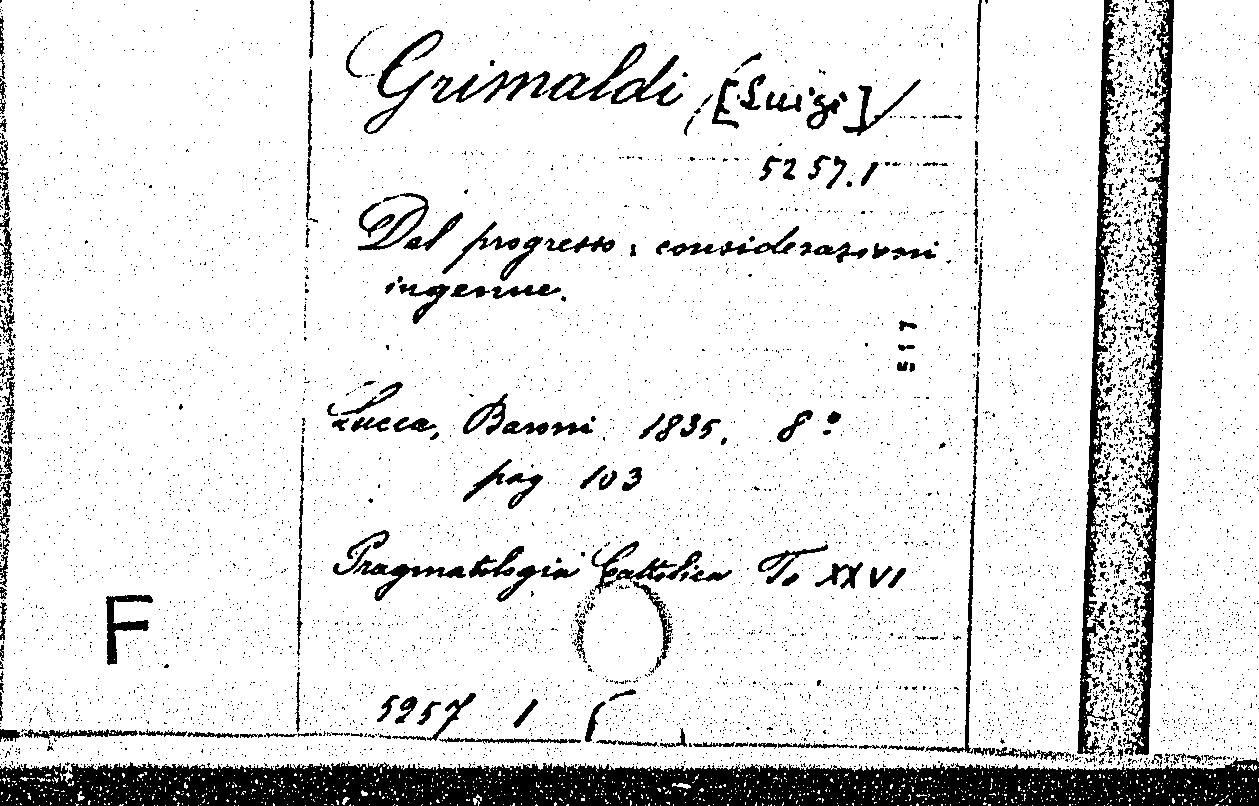 Grimaldi [Luigi]
5257.1
Del progresso; considerazioni
ingenue.
517
Lucca, Baroni 1835. 8º
pag 103
Pragmatologia Cattolica To XXVI
F
5257 1